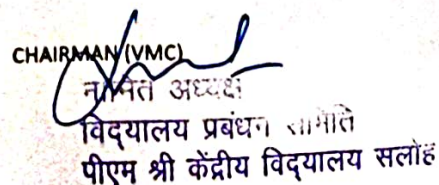 CHAIRMAN (VMC)
नामित अध्यक्ष
विद्यालय प्रबंधन समिति
पीएम श्री केंद्रीय विद्यालय सलोह